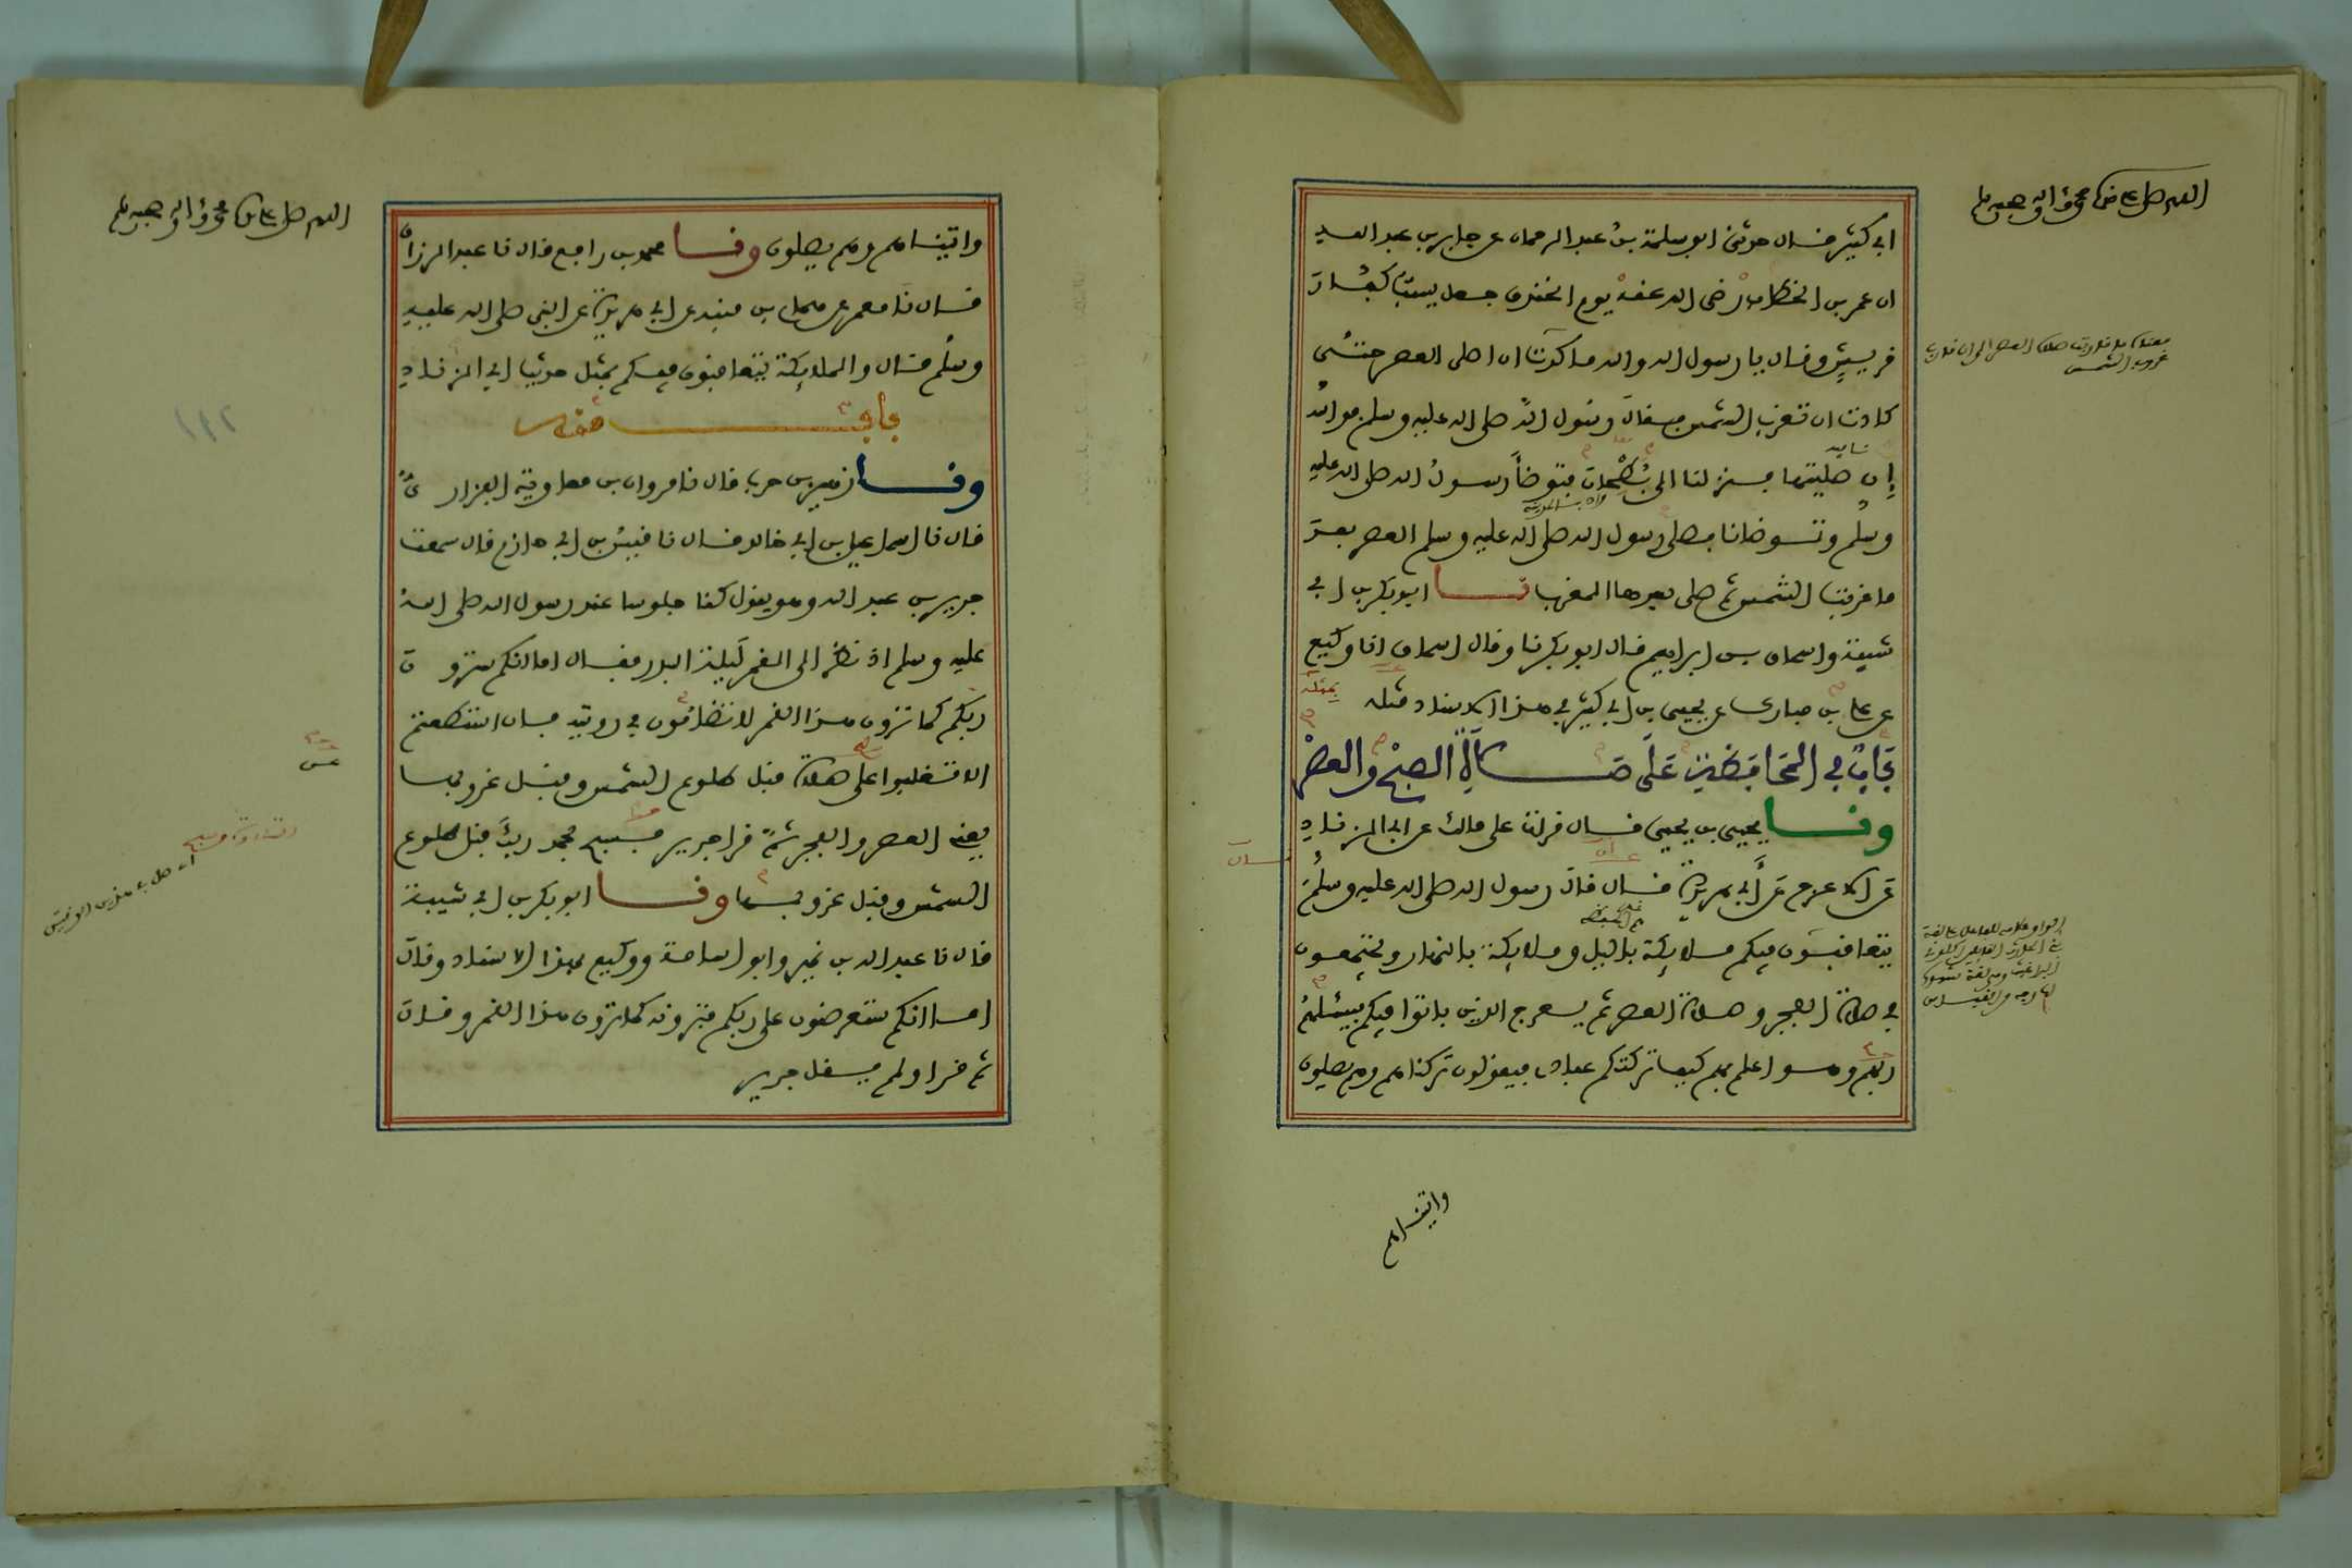 اللهم صل على سيدنا محمد وآله وصحبه وسلم
ابي كثير قال حدثني ابو سلمة بن عبد الرحمان عن جابر بن عبد الله
ان عمر بن الخطاب رضي الله عنه يوم الخندق جعل يسب كفار
قريش وقال يا رسول الله والله ما كدت ان اصلي العصر حتى
كادت ان تغرب الشمس فقال رسول الله صلى الله عليه وسلم فوالله
إن صليتها فنزلنا الى بطحان فتوضأ رسول الله صلى الله عليه
وسلم وتوضانا فصلى رسول الله صلى الله عليه وسلم العصر بعد
ما غربت الشمس ثم صلى بعدها المغرب نا ابو بكر بن ابي
شيبة واسحاق بن ابراهيم قال ابو بكر نا وقال اسحاق انا وكيع
عن علي بن مبارك عن يحيى بن ابي كثير في هذا الاسناد مثله
بمثله
باب في المحافظين على صلاة الصبح والعصر
ونا يحيى بن يحيى قال قرات على مالك عن ابي الزناد
عن الاعرج عن أبي هريرة قال قال رسول الله صلى الله عليه وسلم
يتعاقبون فيكم ملايكة بالليل وملايكة بالنهار ويجتمعون
في صلاة الفجر وصلاة العصر ثم يعرج الذين باتوا فيكم فيسئلهم
ربهم وهو اعلم بهم كيف تركتم عبادي فيقولون تركناهم وهم يصلون
غروب الشمس
واتيناهم
اللهم صل على سيدنا محمد وآله وصحبه وسلم
واتيناهم وهم يصلون ونا محمد بن رافع قال نا عبد الرزاق
قال نا معمر عن همام بن منبه عن ابي هريرة عن النبي صلى الله عليه
وسلم قال والملايكة يتعاقبون فيكم بمثل حديث ابي الزناد
باب منه
ونا زهير بن حرب قال نا مروان بن معاوية الفزاري
قال نا اسماعيل بن ابي خالد قال نا قيس بن ابي حازم قال سمعت
جرير بن عبد الله وهو يقول كنا جلوسا عند رسول الله صلى الله
عليه وسلم اذ نظر الى القمر ليلة البدر فقال اما انكم سترون
ربكم كما ترون هذا القمر لا تضامون في رويته فان استطعتم
الا تغلبوا على صلاة قبل طلوع الشمس وقبل غروبها
يعني العصر والفجر ثم قرا جرير فسبح بحمد ربك قبل طلوع
الشمس وقبل غروبها ونا ابو بكر بن ابي شيبة
قال نا عبد الله بن نمير وابو اسامة ووكيع بهذا الاسناد وقال
اما انكم ستعرضون على ربكم فترونه كما ترون هذا القمر وقال
ثم قرا ولم يقل جرير
١١٢